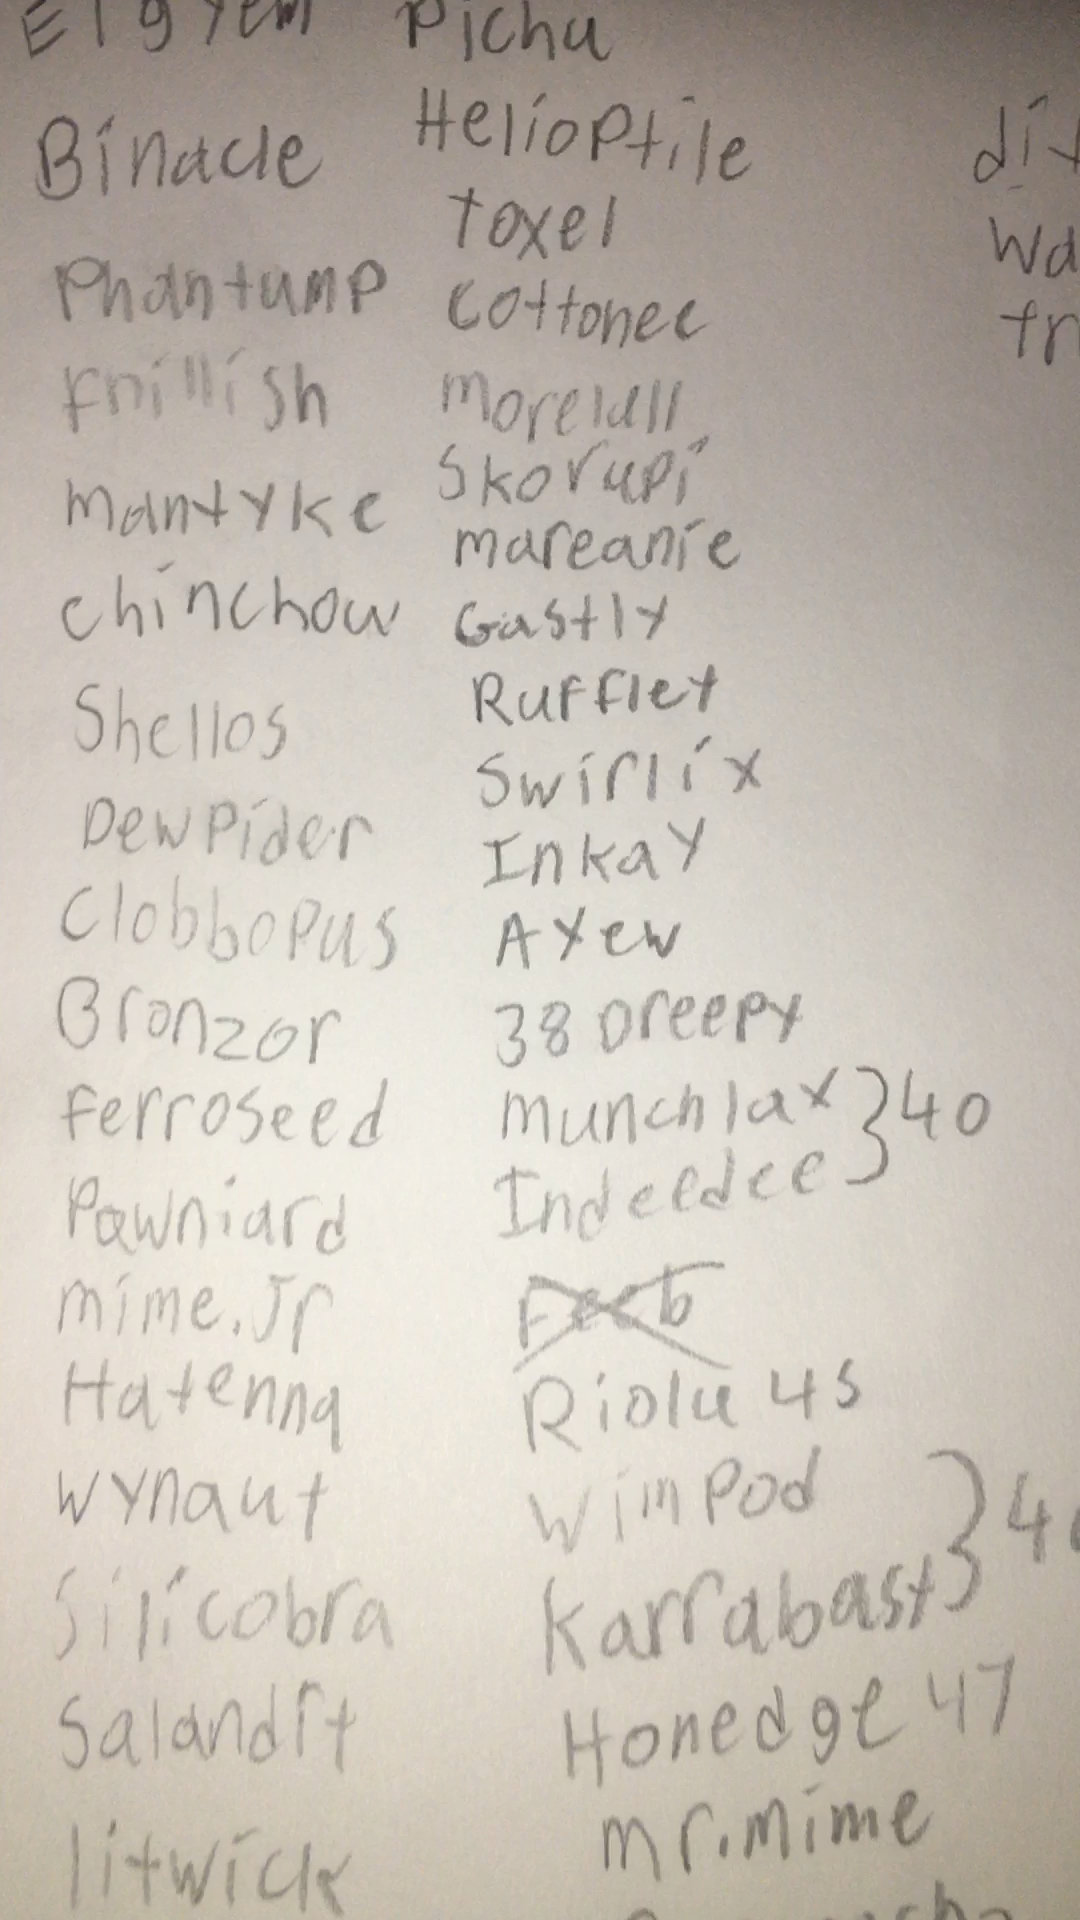 Elgyem
Binacle
Phantump
Frillish
mantyke
chinchow
Shellos
Dewpider
Clobbopus
Bronzor
Ferroseed
Pawniard
mime.Jr
Hatenna
wynaut
Silicobra
Salandit
litwick
Pichu
Helioptile
Toxel
Cottonee
morelull
Skorupi
mareanie
Gastly
Rufflet
Swirlix
Inkay
Axew
38 Dreepy
munchlax } 40
Indeedee
Feeb
Riolu 45
wimpod
Karrabast
Honedge 47
mr.mime